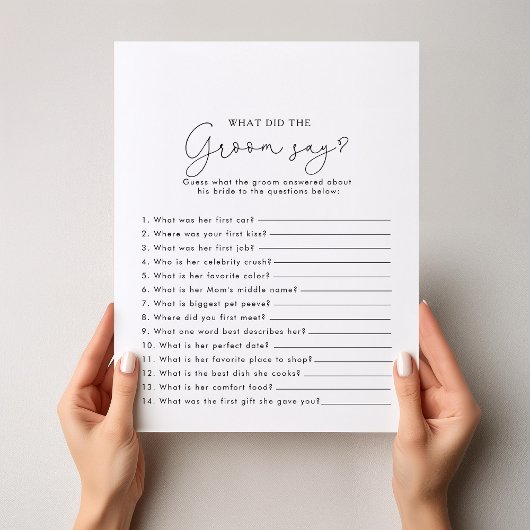 WHAT DID THE
Groom say?
Guess what the groom answered about
his bride to the questions below:
1. What was her first car?
2. Where was your first kiss?
3. What was her first job?
4. Who is her celebrity crush?
5. What is her favorite color?
6. What is her Mom's middle name?
7. What is biggest pet peeve?
8. Where did you first meet?
9. What one word best describes her?
10. What is her perfect date?
11. What is her favorite place to shop?
12. What is the best dish she cooks?
13. What is her comfort food?
14. What was the first gift she gave you?